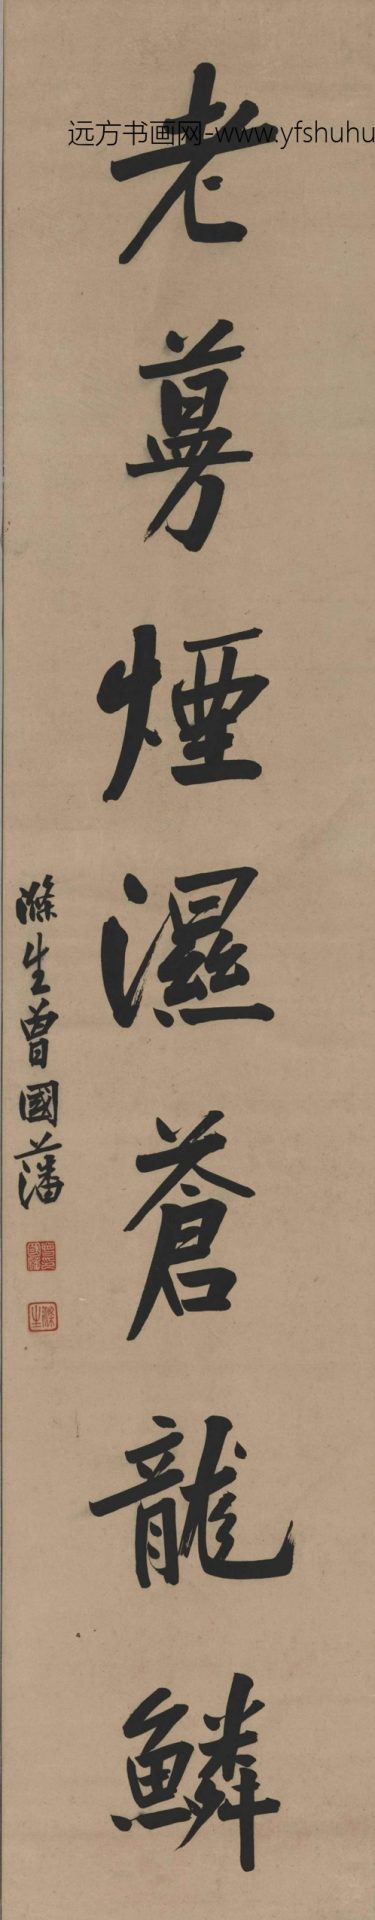 远方书画网-www.yfshuhu
老蔓煙濕蒼龍鱗
滌生曾國藩
滌生